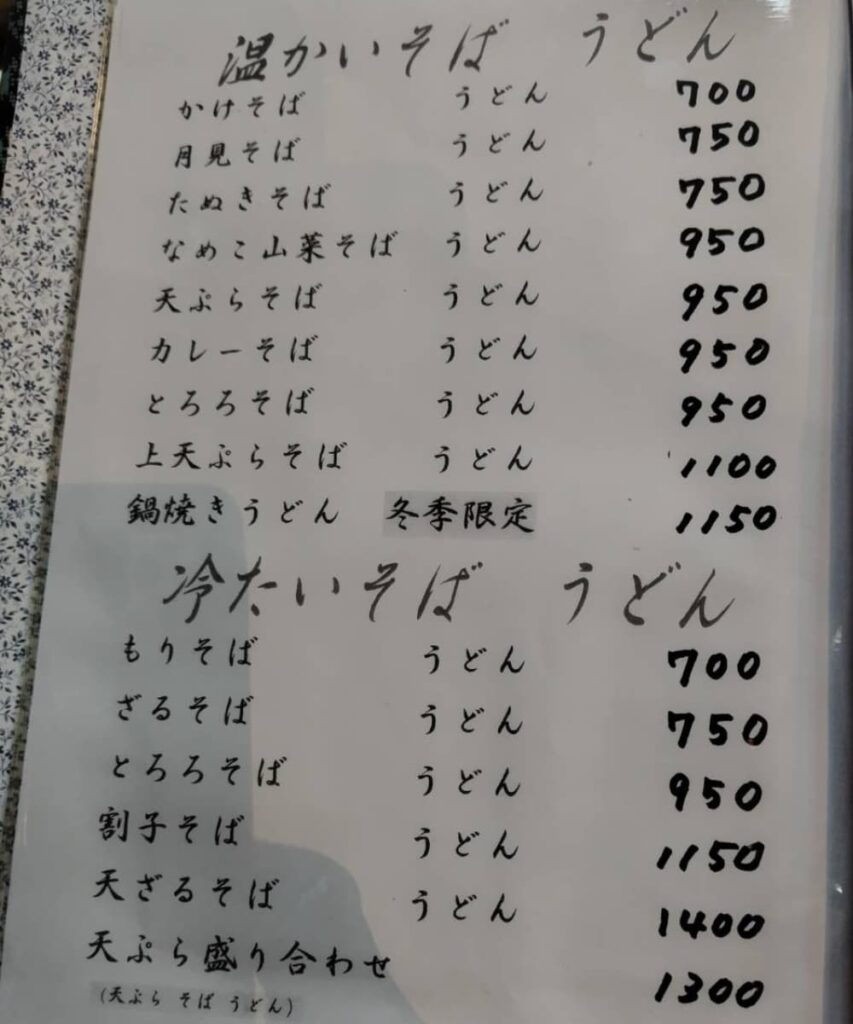 温かいそば うどん
かけそば うどん 700
月見そば うどん 750
たぬきそば うどん 750
なめこ山菜そば うどん 950
天ぷらそば うどん 950
カレーそば うどん 950
とろろそば うどん 950
上天ぷらそば うどん 1100
鍋焼きうどん 冬季限定 1150
冷たいそば うどん
もりそば うどん 700
ざるそば うどん 750
とろろそば うどん 950
割子そば うどん 1150
天ざるそば うどん 1400
天ぷら盛り合わせ 1300
(天ぷら そば うどん)